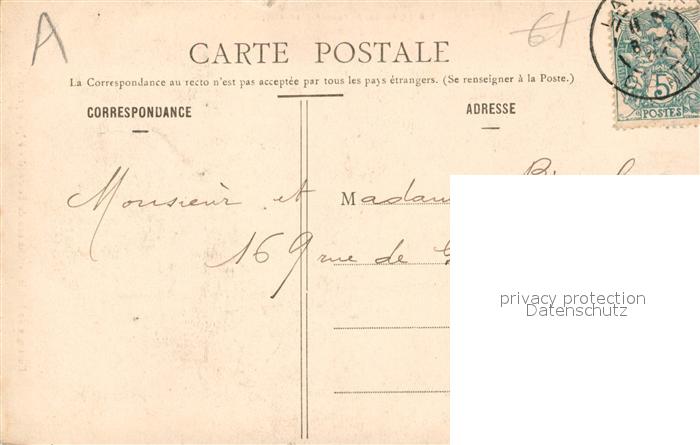 A
61
CARTE POSTALE
La Correspondance au recto n'est pas acceptée par tous les pays étrangers. (Se renseigner à la Poste.)
CORRESPONDANCE
ADRESSE
5c
POSTES
Monsieur et Madam
169 rue de
privacy protection
Datenschutz